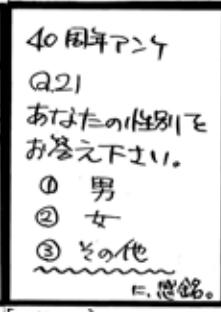 40周年アンケ
Q.21
あなたの性別を
お答え下さい。
① 男
② 女
③ その他
に、感銘。